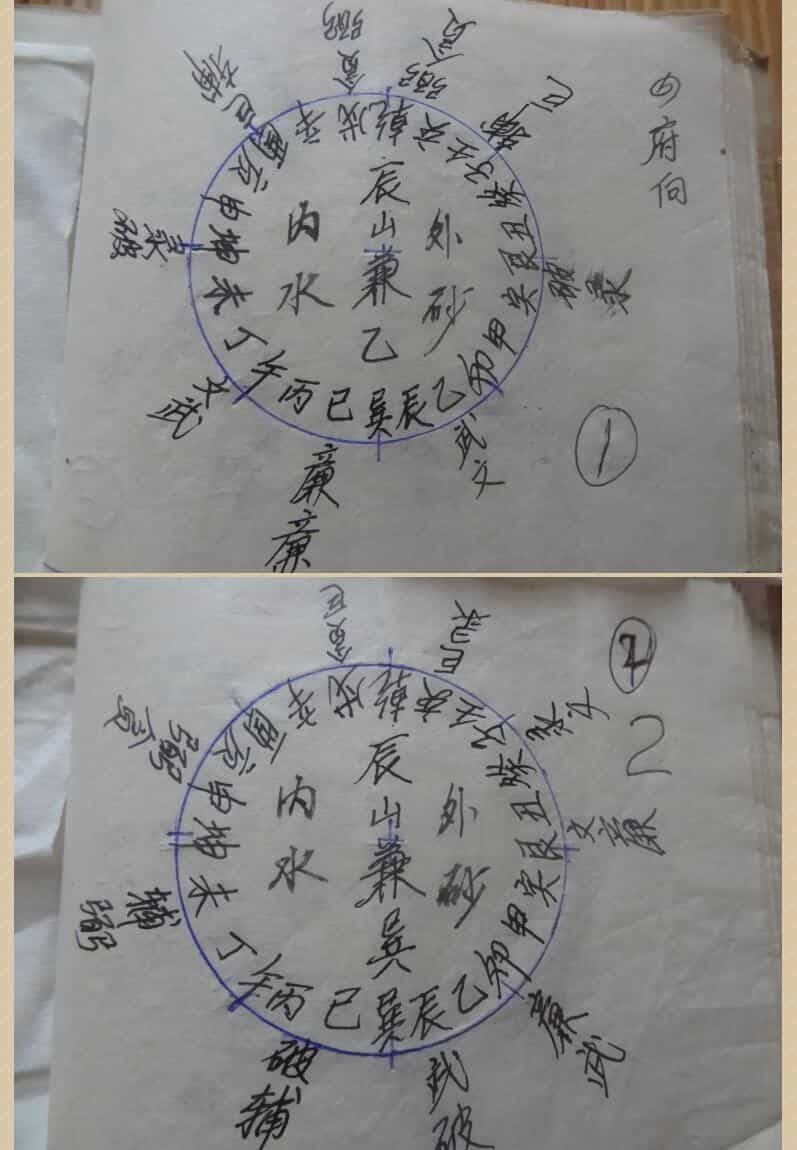 府向
辰山兼乙
内水
外砂
乾亥壬子癸丑艮寅甲卯乙辰巽巳丙午丁未坤申庚酉辛戌
貪
弼
弼
貪
巨
輔
破
录
武
文
廉
廉
文
武
录
破
巨
輔
1
辰山兼巽
内水
外砂
乾亥壬子癸丑艮寅甲卯乙辰巽巳丙午丁未坤申庚酉辛戌
貪
巨
巨
录
录
文
文
廉
廉
武
武
破
破
輔
輔
弼
弼
貪
2